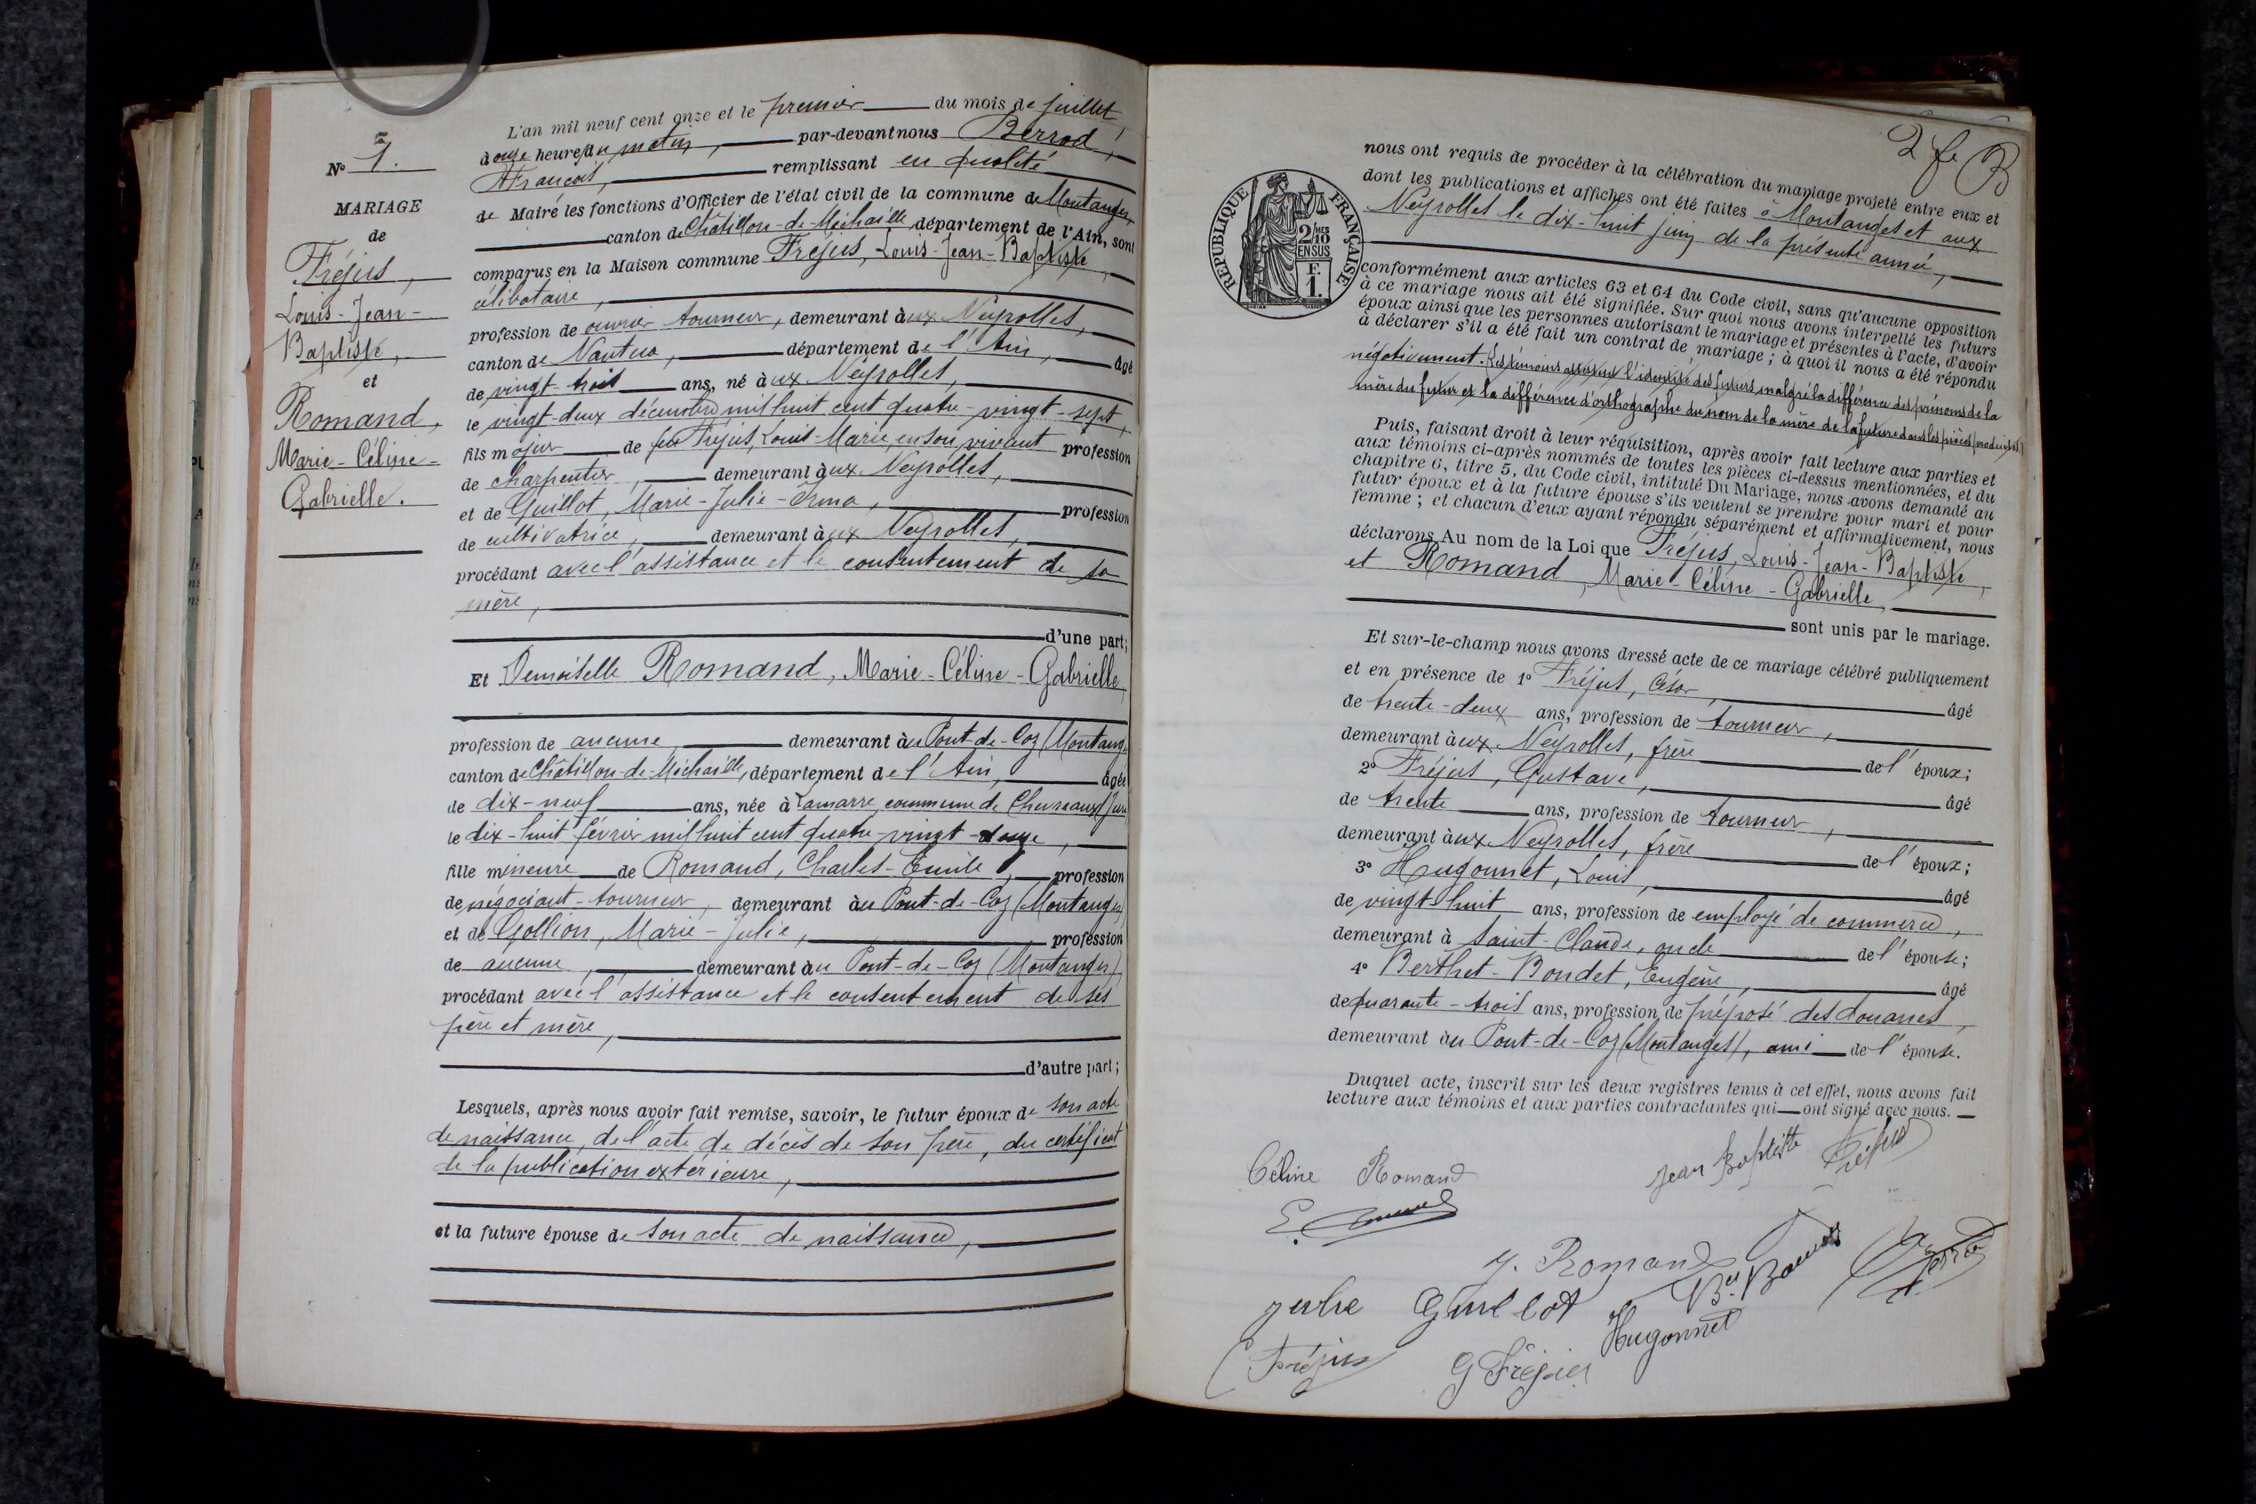 Nº 7.
MARIAGE
de
Fréjus,
Louis-Jean-
Baptiste,
et
Romand,
Marie-Céline-
Gabrielle.
L'an mil neuf cent onze et le premier du mois de juillet,
à onze heures du matin, par-devant nous Berrod,
François, remplissant en qualité
de Maire les fonctions d'Officier de l'état civil de la commune de Montanges,
canton de Châtillon-de-Michaille, département de l'Ain, sont
comparus en la Maison commune Fréjus, Louis-Jean-Baptiste,
célibataire,
profession de ouvrier tourneur, demeurant aux Neyrolles,
canton de Nantua, département de l'Ain, âgé
de vingt-trois ans, né aux Neyrolles,
le vingt-deux décembre mil huit cent quatre-vingt-sept,
fils majeur de feu Fréjus, Louis-Marie, en son vivant profession
de charpentier, demeurant aux Neyrolles,
et de Guillot, Marie-Julie-Irma, profession
de cultivatrice, demeurant aux Neyrolles,
procédant avec l'assistance et le consentement de sa
mère,
d'une part;
Et Demoiselle Romand, Marie-Céline-Gabrielle,
profession de aucune, demeurant au Pont-de-Coz (Montanges)
canton de Châtillon-de-Michaille, département de l'Ain, âgée
de dix-neuf ans, née à Lamarre, commune de Chevreaux (Jura)
le dix-huit février mil huit cent quatre-vingt-douze,
fille mineure de Romand, Charles-Emile, profession
de négociant-tourneur, demeurant au Pont-de-Coz (Montanges)
et de Gollion, Marie-Julie, profession
de aucune, demeurant au Pont-de-Coz (Montanges)
procédant avec l'assistance et le consentement de ses
père et mère,
d'autre part;
Lesquels, après nous avoir fait remise, savoir, le futur époux de son acte
de naissance, de l'acte de décès de son père, du certificat
de la publication extérieure,
et la future épouse de son acte de naissance,
2 f B
RÉPUBLIQUE FRANÇAISE
2/10 MES
EN SUS
F.
1.
nous ont requis de procéder à la célébration du mariage projeté entre eux et
dont les publications et affiches ont été faites à Montanges et aux
Neyrolles le dix-huit juin de la présente année,
conformément aux articles 63 et 64 du Code civil, sans qu'aucune opposition
à ce mariage nous ait été signifiée. Sur quoi nous avons interpellé les futurs
époux ainsi que les personnes autorisant le mariage et présentes à l'acte, d'avoir
à déclarer s'il a été fait un contrat de mariage; à quoi il nous a été répondu
négativement. Les témoins l'identité des futurs malgré la différence des prénoms de la
mère du futur et la différence d'orthographe du nom de la mère de la future dans les pièces produites.
Puis, faisant droit à leur réquisition, après avoir fait lecture aux parties et
aux témoins ci-après nommés de toutes les pièces ci-dessus mentionnées, et du
chapitre 6, titre 5, du Code civil, intitulé Du Mariage, nous avons demandé au
futur époux et à la future épouse s'ils veulent se prendre pour mari et pour
femme; et chacun d'eux ayant répondu séparément et affirmativement, nous
déclarons Au nom de la Loi que Fréjus, Louis-Jean-Baptiste,
et Romand, Marie-Céline-Gabrielle,
sont unis par le mariage.
Et sur-le-champ nous avons dressé acte de ce mariage célébré publiquement
et en présence de 1º Fréjus, César, âgé
de trente-deux ans, profession de tourneur,
demeurant aux Neyrolles, frère de l'époux;
2º Fréjus, Gustave, âgé
de trente ans, profession de tourneur,
demeurant aux Neyrolles, frère de l'époux;
3º Hugonnet, Louis, âgé
de vingt-huit ans, profession de employé de commerce,
demeurant à Saint-Claude, oncle de l'épouse;
4º Berthet-Bondet, Eugène, âgé
de quarante-trois ans, profession de préposé des douanes,
demeurant au Pont-de-Coz (Montanges), ami de l'épouse.
Duquel acte, inscrit sur les deux registres tenus à cet effet, nous avons fait
lecture aux témoins et aux parties contractantes qui ont signé avec nous.
Céline Romand
Jean Baptiste Fréjus
J. Romand
julie Guillot
Hugonnet
Fréjus
G Fréjus